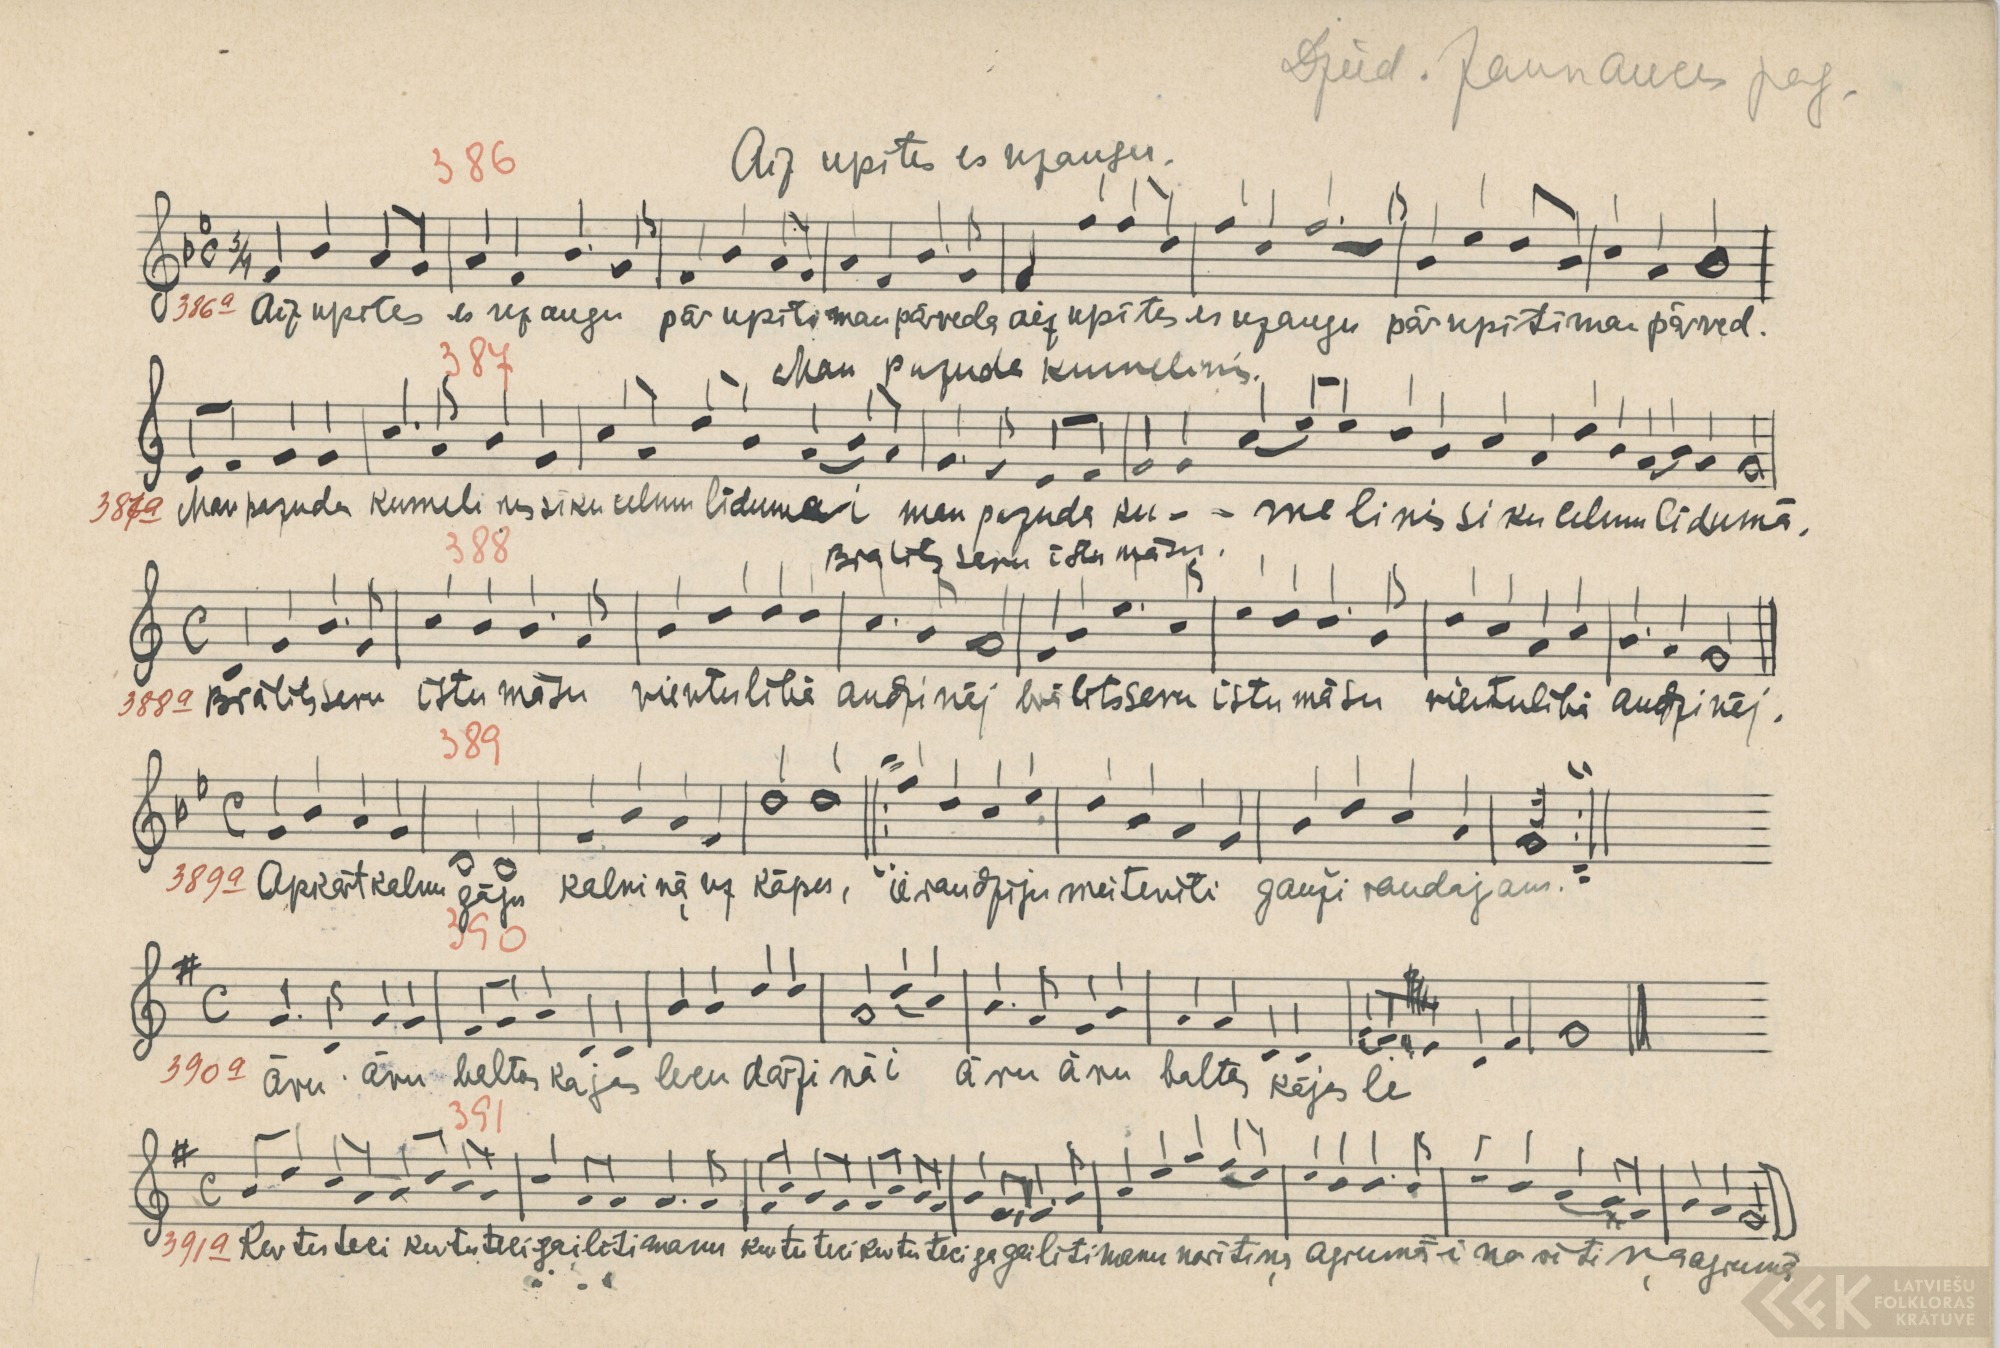 Dzied. Jaunauces pag.
386 Aiz upītes es uzaugu.
3/4
386a Aiz upītes es uzaugu pār upīti man pārveda aiz upītes es uzaugu pār upīti man pārved.
387 Man pazuda kumelinis.
387a Man pazuda kumeli nis siku celmu līdumai man pazuda ku - - me linis si ku celmu līdumā.
388 Brālits sevu īstu māsu.
C
388a Brālits sevu īstu māsu vientulībā audzinēj brālits sevu īstu māsu vientulībā audzinēj.
389
C
389a Apkārt kalnu gāju kalni ņā uz kāpu, ieraudzīju meitenīti gauži raudajam.
390
C
390a āru āru baltas kajas lecu dārzi nā i āru āru baltas kājas le
391
C
391a Kur tu teci kur tu teci gailīti manu kur tu teci kur tu teci ga gailīti manu no rīti ņa agrumā i no rīti ņa agrumā
LATVIEŠU
FOLKLORAS
KRĀTUVE